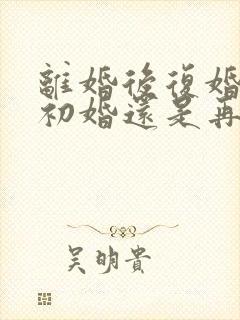 離婚後復婚
初婚還是再
吳明貴